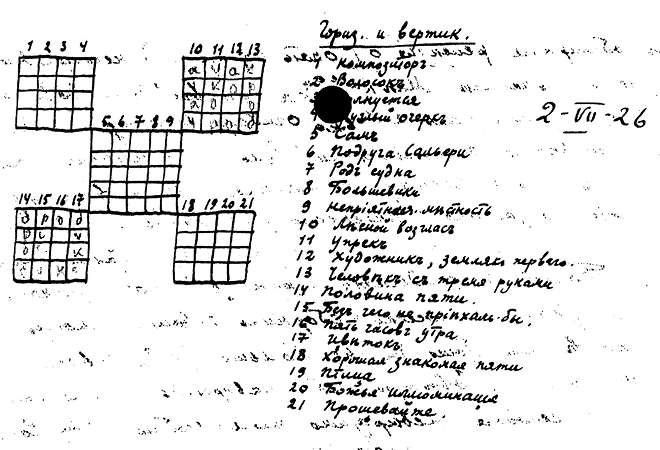 Гориз. и вертик.
1 2 3 4
10 11 12 13
1 Композиторъ
2 Волосокъ
2-VII-26
очеркъ
5 Самъ
5 6 7 8 9
6 Подруга Сальери
7 Родъ судна
8 Большевики
9 Непріятная мѣстность
14 15 16 17
18 19 20 21
10 Лѣсной возгласъ
11 Упрекъ
12 Художникъ, землякъ перваго.
13 Человѣкъ съ тремя руками
14 Половина пяти.
15 Безъ чего не пріѣхалъ бы.
16 Пять часовъ утра
17 Цвѣтокъ
18 Хорошая знакомая пяти
19 Птица
20 Божья иллюминація
21 Прошевайте.